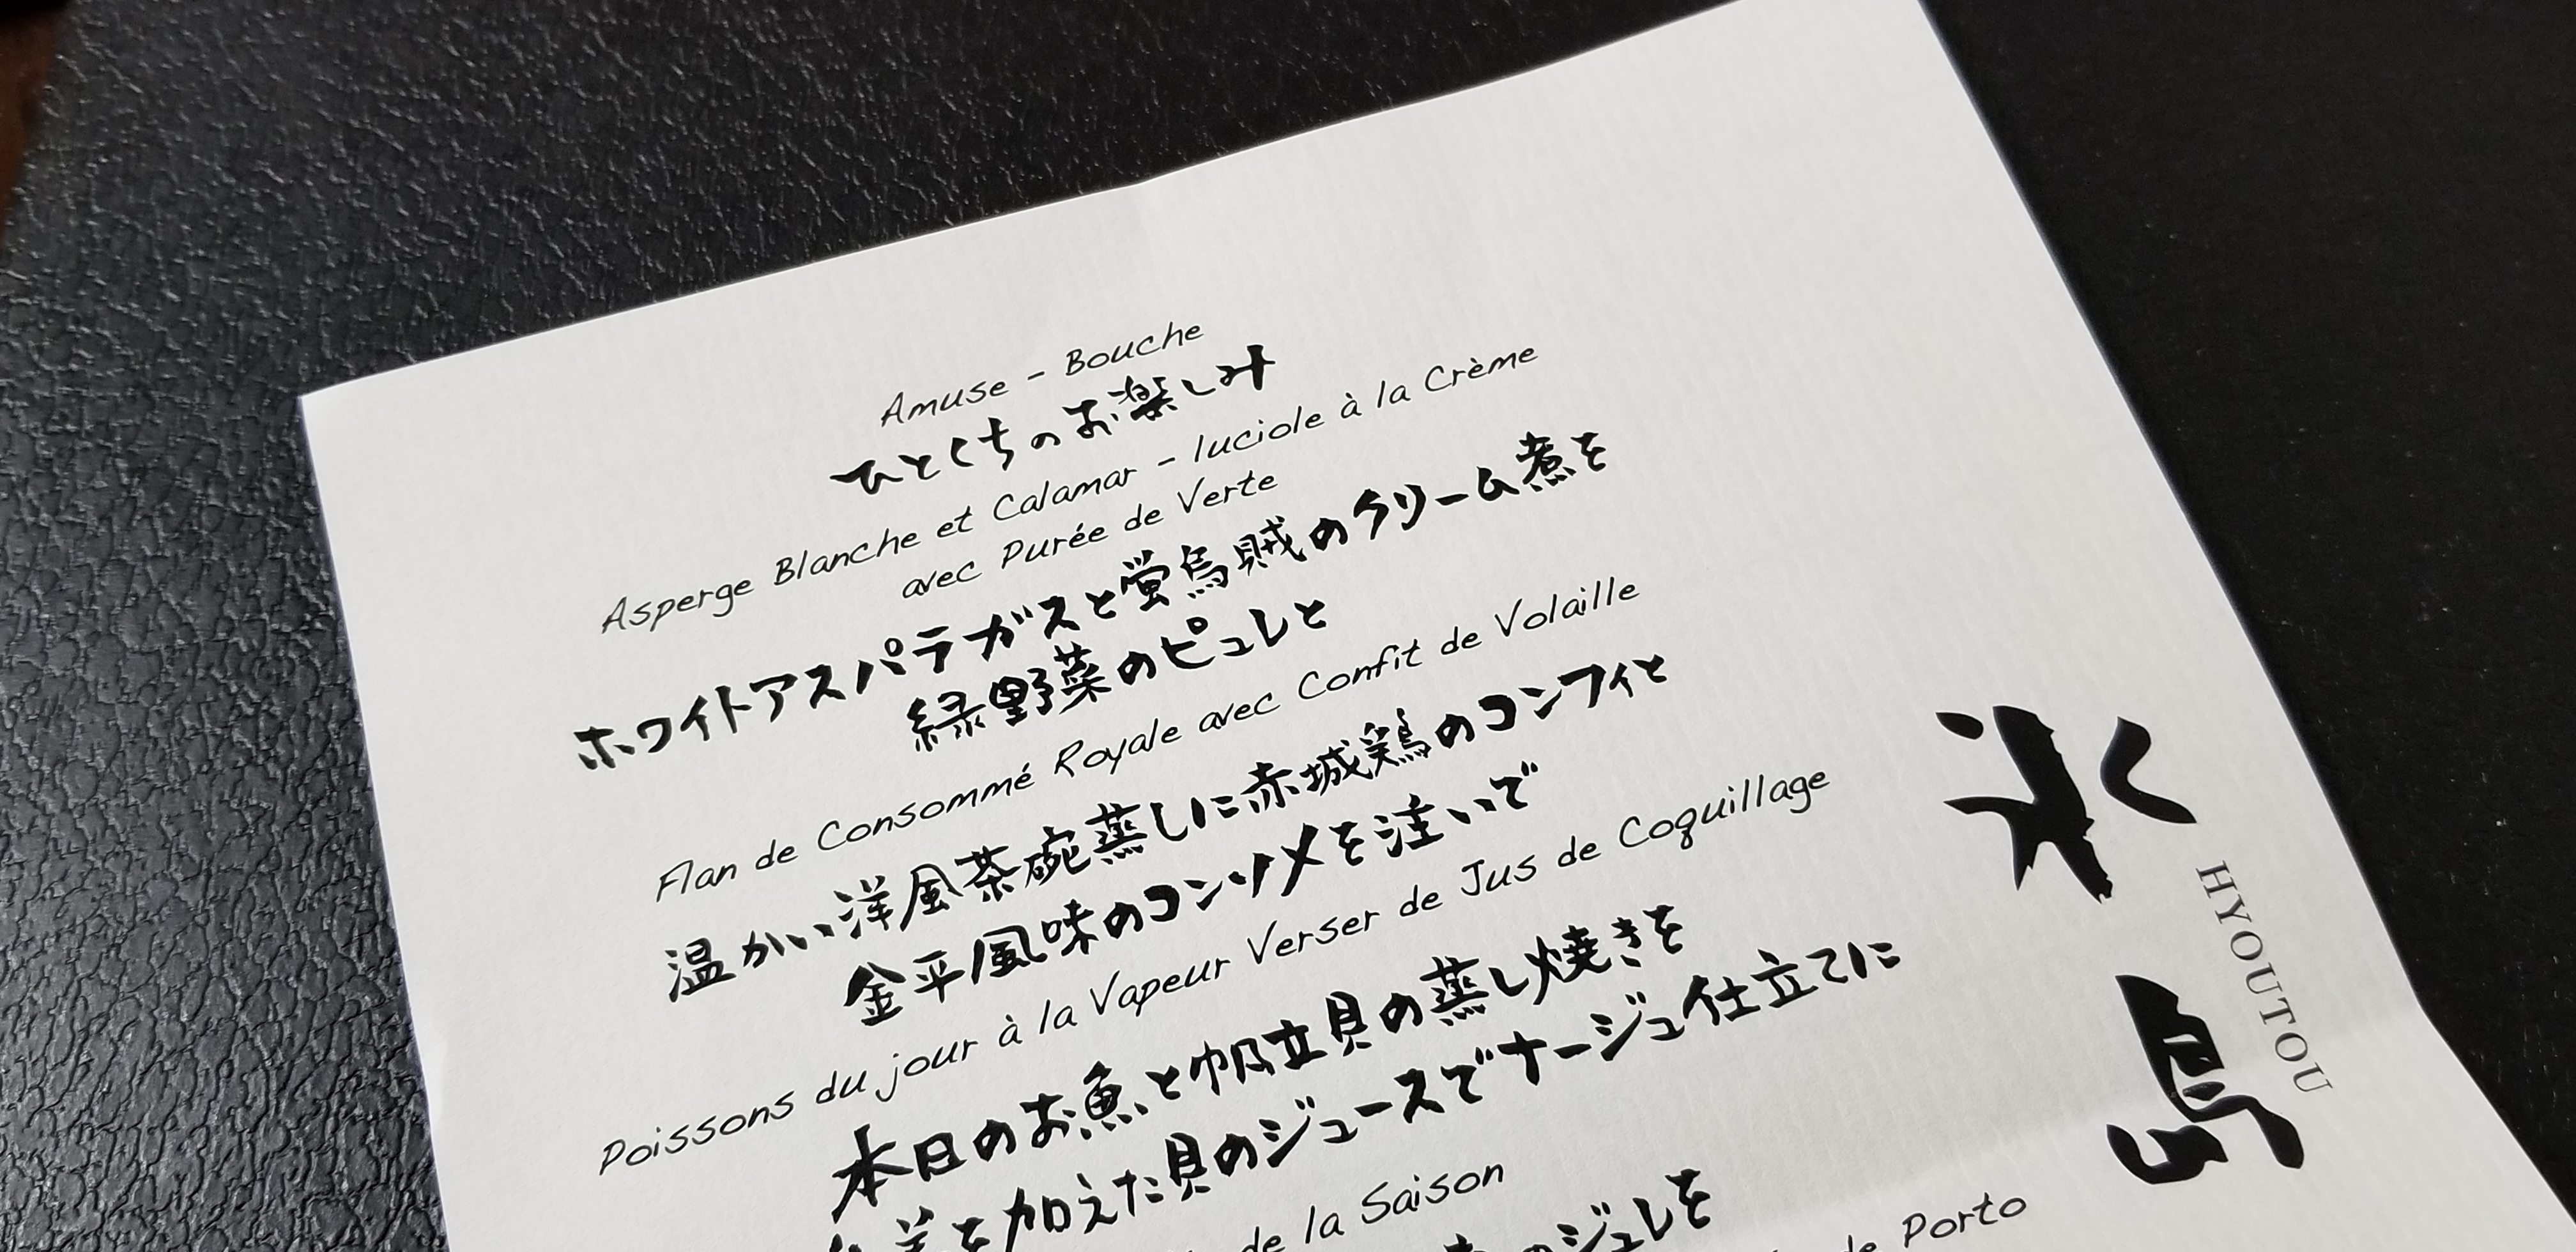 Amuse - Bouche
ひとくちのお楽しみ
Asperge Blanche et Calamar - luciole à la Crème
avec Purée de Verte
ホワイトアスパラガスと蛍烏賊のクリーム煮を
緑野菜のピュレと
Flan de Consommé Royale avec Confit de Volaille
温かい洋風茶碗蒸しに赤城鶏のコンフィと
金平風味のコンソメを注いで
Poissons du jour à la Vapeur Verser de Jus de Coquillage
本日のお魚と帆立貝の蒸し焼きを
を加えた貝のジュースでナージュ仕立てに
de la Saison
のジュレを
de Porto
氷島
HYOUTOU